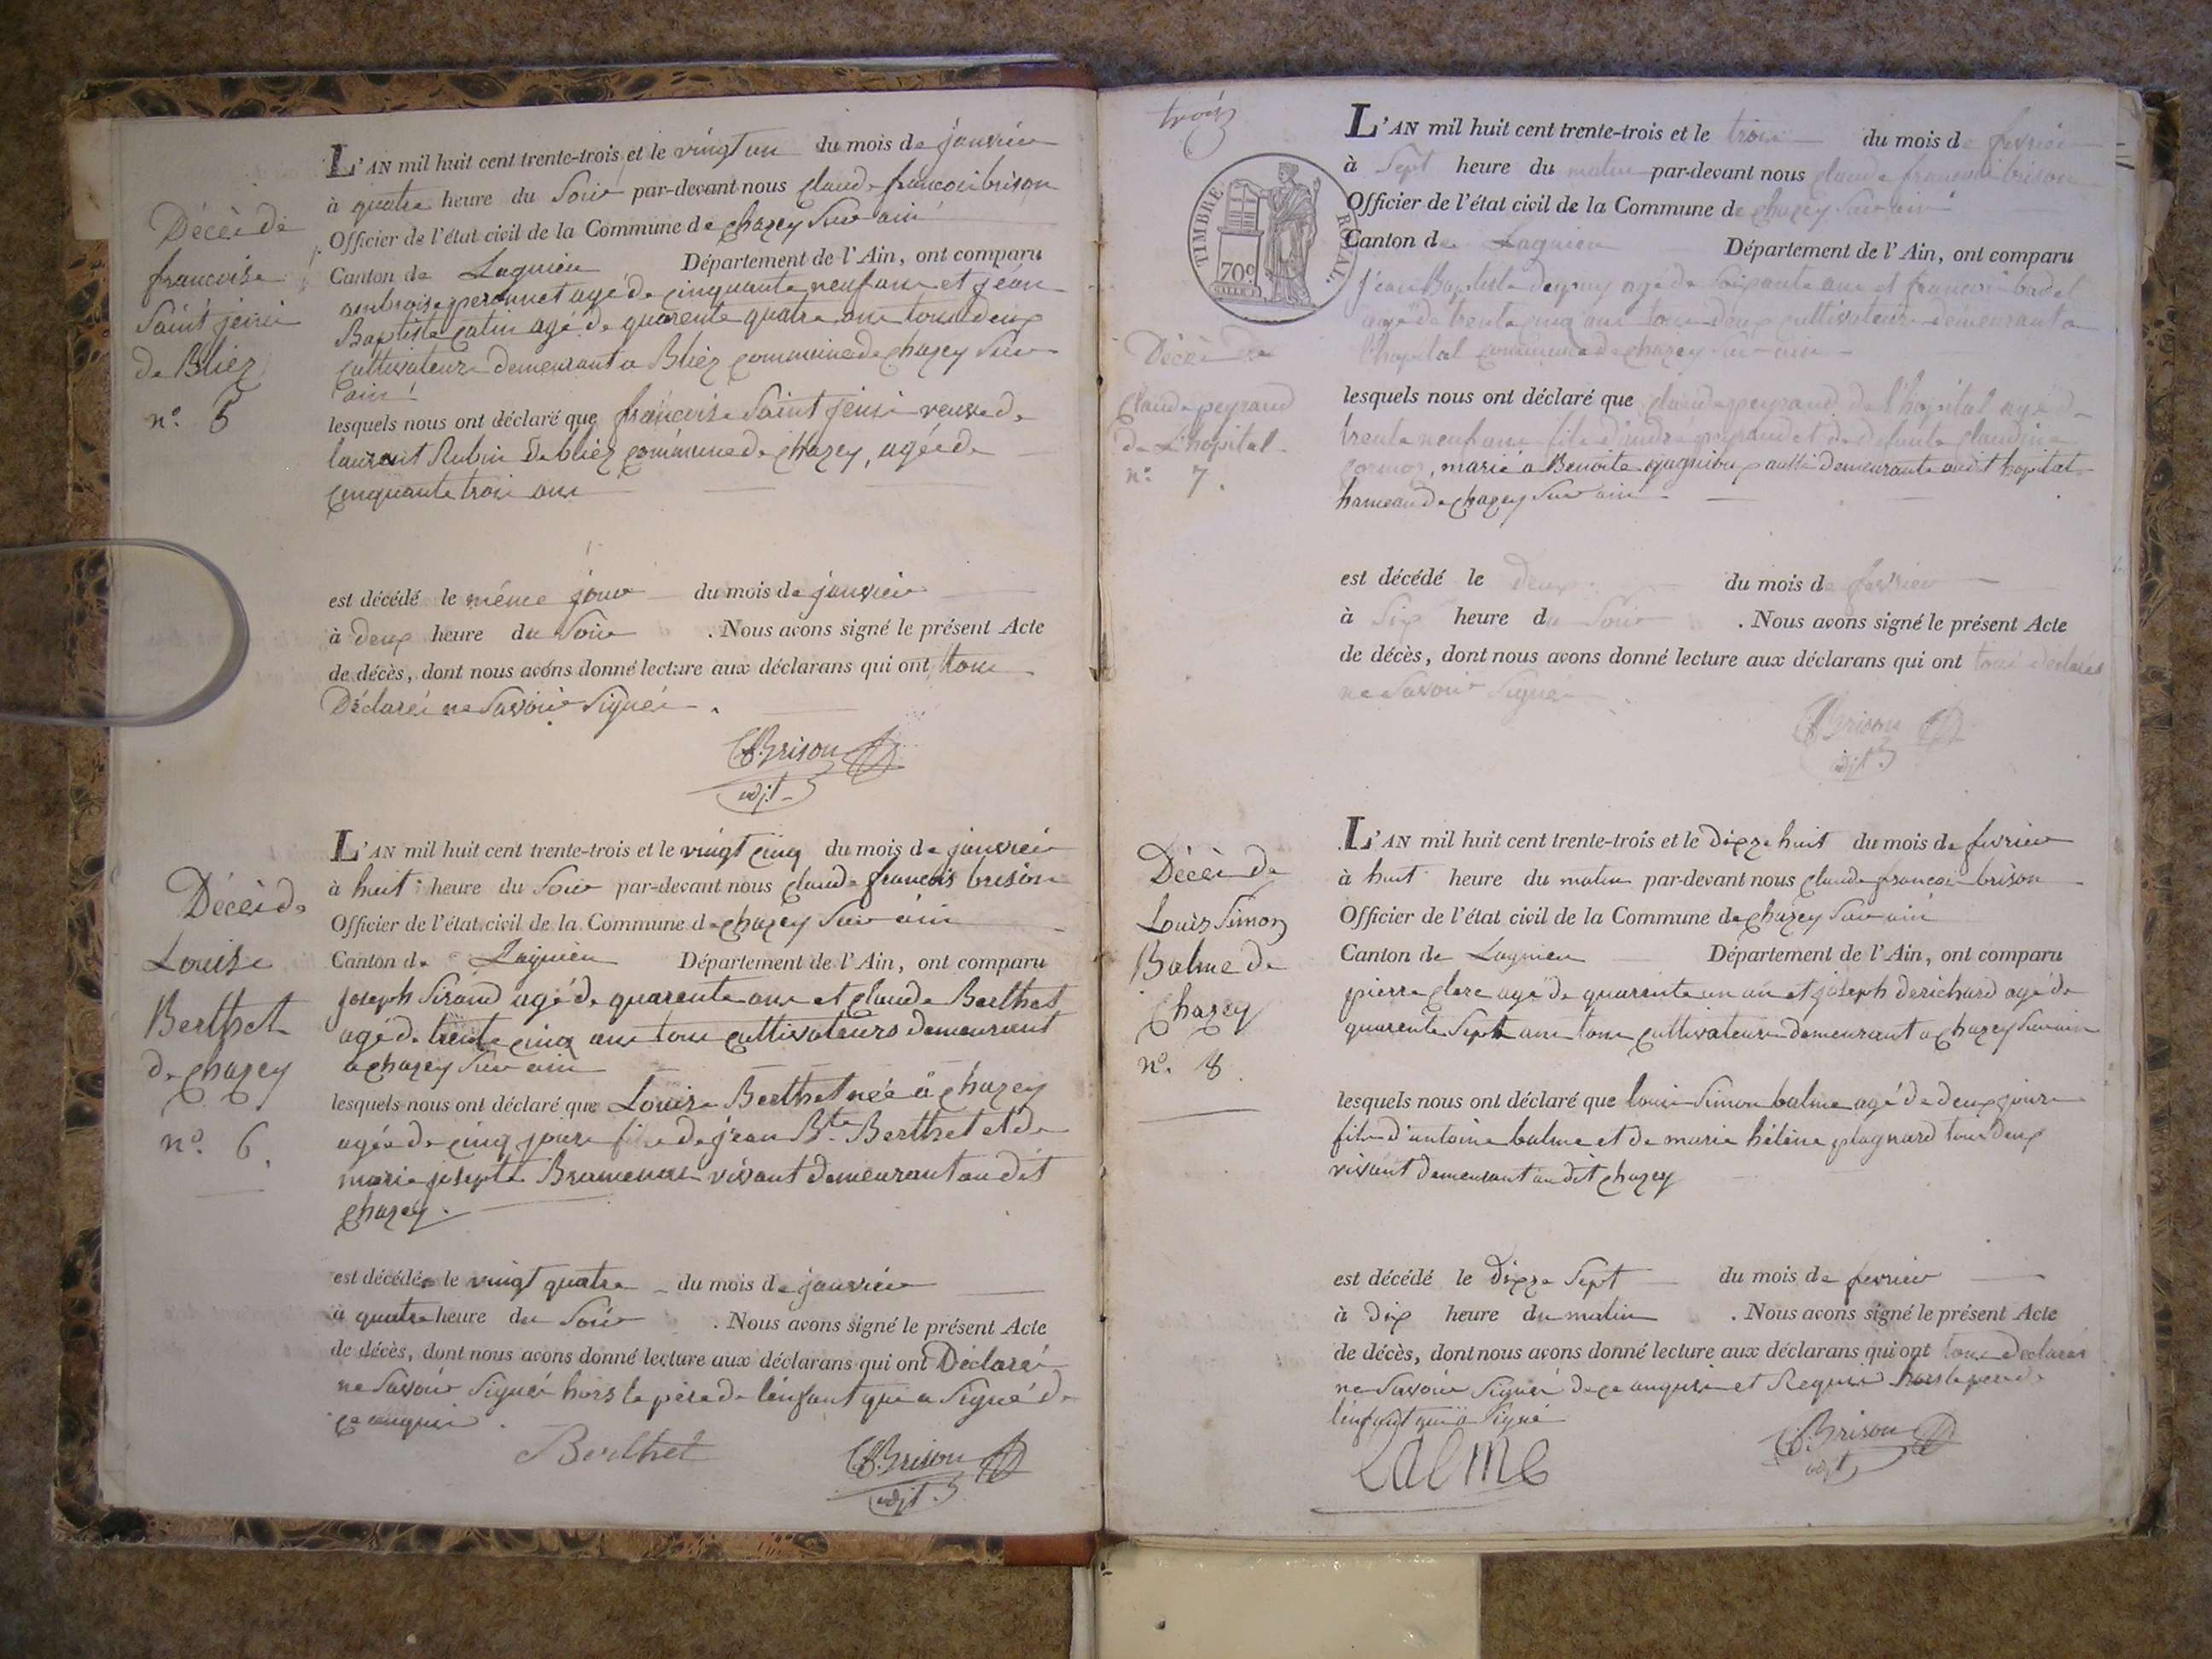 Décès de
françoise
Saint jeni
de Bliez
n.° 5
L'AN mil huit cent trente-trois et le vingt un du mois de janvier
à quatre heure du Soir par-devant nous claude françois brison
Officier de l'état civil de la Commune de chazey Sur ain
Canton de Lagnieu Département de l'Ain, ont comparu
ambroise peronnet agé de cinquante neuf ans et jéan
Baptiste catin agé de quarente quatre ans tous deux
cultivateurs demeurant a Bliez commune de chazey Sur
ain
lesquels nous ont déclaré que françoise Saint jeni veuve de
laurent Rubin de bliez commune de chazey, agée de
cinquante trois ans
est décédé le même jour du mois de janvier
à deux heure du Soir . Nous avons signé le présent Acte
de décès, dont nous avons donné lecture aux déclarans qui ont tous
Déclarés ne Savoir Signér .
CfBrison
adjt
Décès de
Louise
Berthet
de chazey
n.° 6.
L'AN mil huit cent trente-trois et le vingt cinq du mois de janvier
à huit heure du Soir par-devant nous claude francois brison
Officier de l'état civil de la Commune de chazey Sur ain
Canton de Lagnieu Département de l'Ain, ont comparu
joseph Sirand agé de quarente ans et claude Berthet
agé de trente cinq ans tous cultivateurs demeurant
a chazey Sur ain
lesquels nous ont déclaré que Louise Berthet née à chazey
agée de cinq jours fille de jean B.te Berthet et de
marie josepte vivant demeurant au dit
chazey.
est décédée le vingt quatre du mois de janvier
à quatre heure du Soir . Nous avons signé le présent Acte
de décès, dont nous avons donné lecture aux déclarans qui ont Déclaré
ne Savoir Signér hors le père de l'enfant qui a Signé de
ce enquis .
Berthet
CfBrison
adjt.
trois
TIMBRE ROYAL.
70c
Décès de
Claude peyraud
de L'hopital
n.° 7.
L'AN mil huit cent trente-trois et le trois du mois de fevrier
à Sept heure du matin par-devant nous claude francois brison
Officier de l'état civil de la Commune de chazey Sur ain
Canton de Lagnieu Département de l'Ain, ont comparu
jean Baptiste agé de Soixante ans et francois badel
agé de trente cinq ans tous deux cultivateurs demeurant a
l'hopital commune de chazey Sur ain
lesquels nous ont déclaré que claude peyraud de l'hopital agé de
trente neuf ans fils d'andré peyraud et de defunte claudine
, marié a Benoite aussi demeurante audit hopital
hameau de chazey Sur ain
est décédé le deux du mois de fevrier
à Six heure du Soir . Nous avons signé le présent Acte
de décès, dont nous avons donné lecture aux déclarans qui ont tous déclarés
ne Savoir Signer
CfBrison
adjt
Décès de
Louis Simon
Balme de
Chazey
n.° 8.
L'AN mil huit cent trente-trois et le dixze huit du mois de fevrier
à huit heure du matin par-devant nous claude francois brison
Officier de l'état civil de la Commune de chazey Sur ain
Canton de Lagnieu Département de l'Ain, ont comparu
pierre clerc agé de quarente un an et joseph derichard agé de
quarente Sept ans tous cultivateurs demeurant a chazey Sur ain
lesquels nous ont déclaré que louis Simon balme agé de deux jours
fils d'antoine balme et de marie hélène plagnard tous deux
vivant demeurant au dit chazey
est décédé le dixze Sept du mois de fevrier
à dix heure du matin . Nous avons signé le présent Acte
de décès, dont nous avons donné lecture aux déclarans qui ont tous déclarés
ne Savoir Signér de ce enquis et Requis hors le pere de
l'enfant qui a Signé
balme
CfBrison
adjt